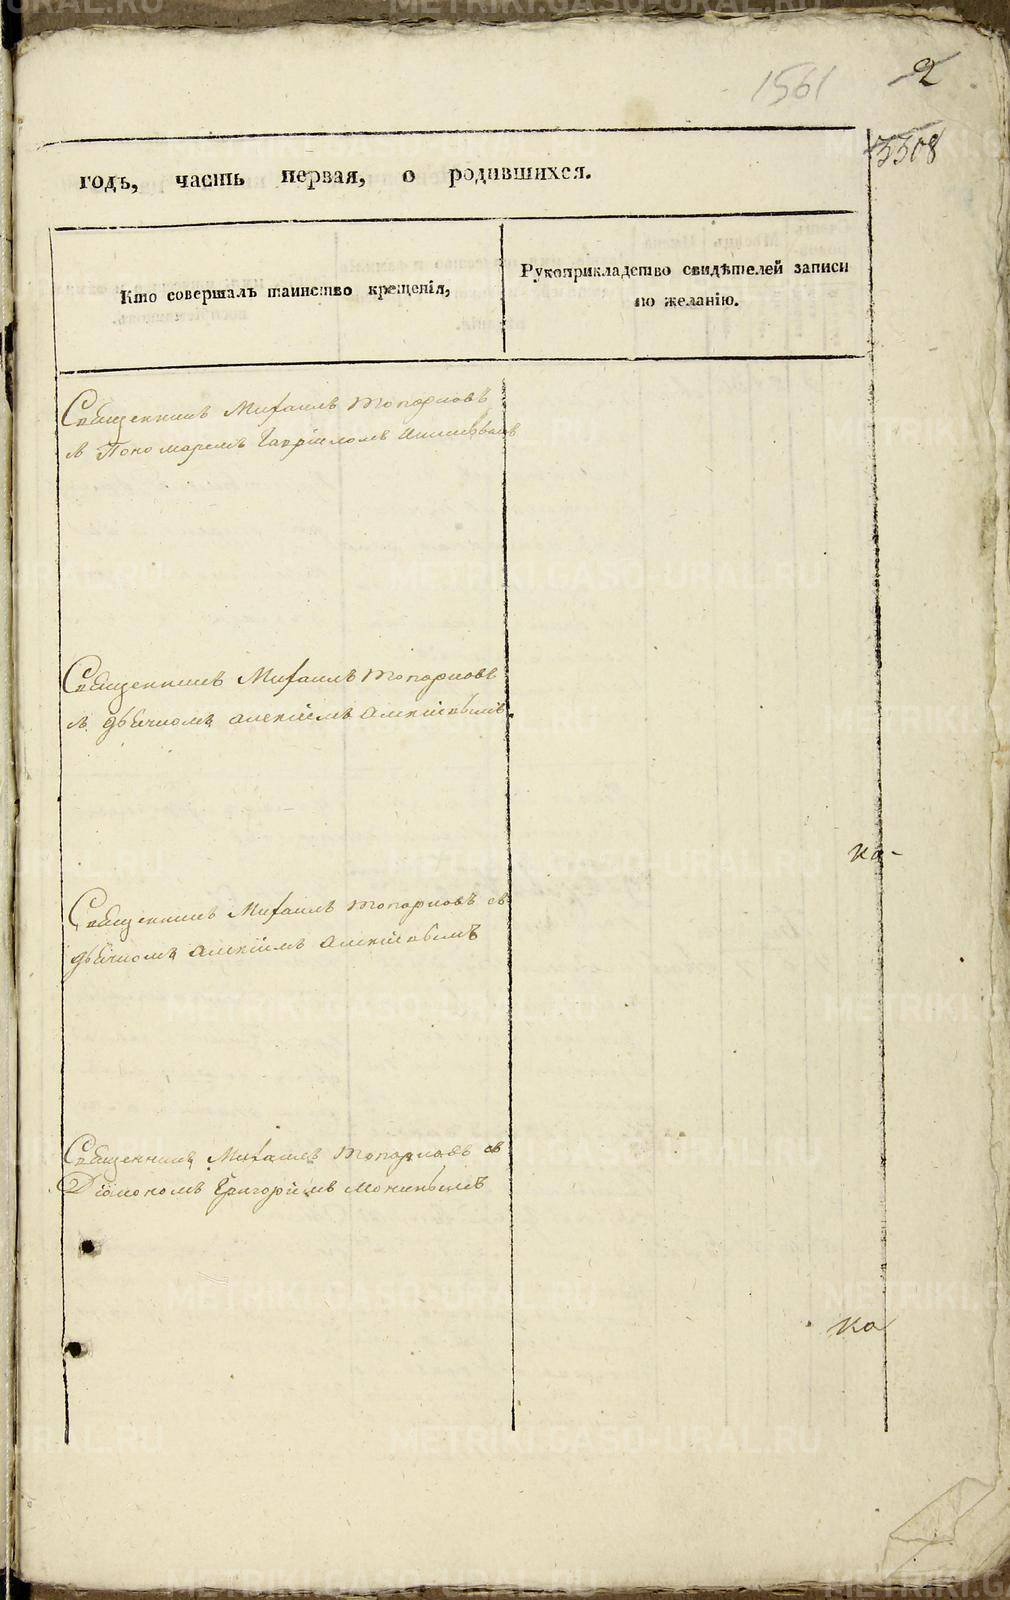 1561
2
3308
годъ, часть первая, о родившихся.
Кто совершалъ таинство крещенія,
Рукоприкладство свидѣтелей записи
по желанію.
Священникъ Михаилъ Топорковъ
съ Пономаремъ Гавріиломъ
Священникъ Михаилъ Топорковъ
съ дьячкомъ Алексіемъ Алексіевымъ
ка-
Священникъ Михаилъ Топорковъ съ
дьячкомъ Алексіемъ Алексіевымъ
Священникъ Михаилъ Топорковъ съ
Діакономъ Григоріемъ
ка
METRIKI.GASO-URAL.RU